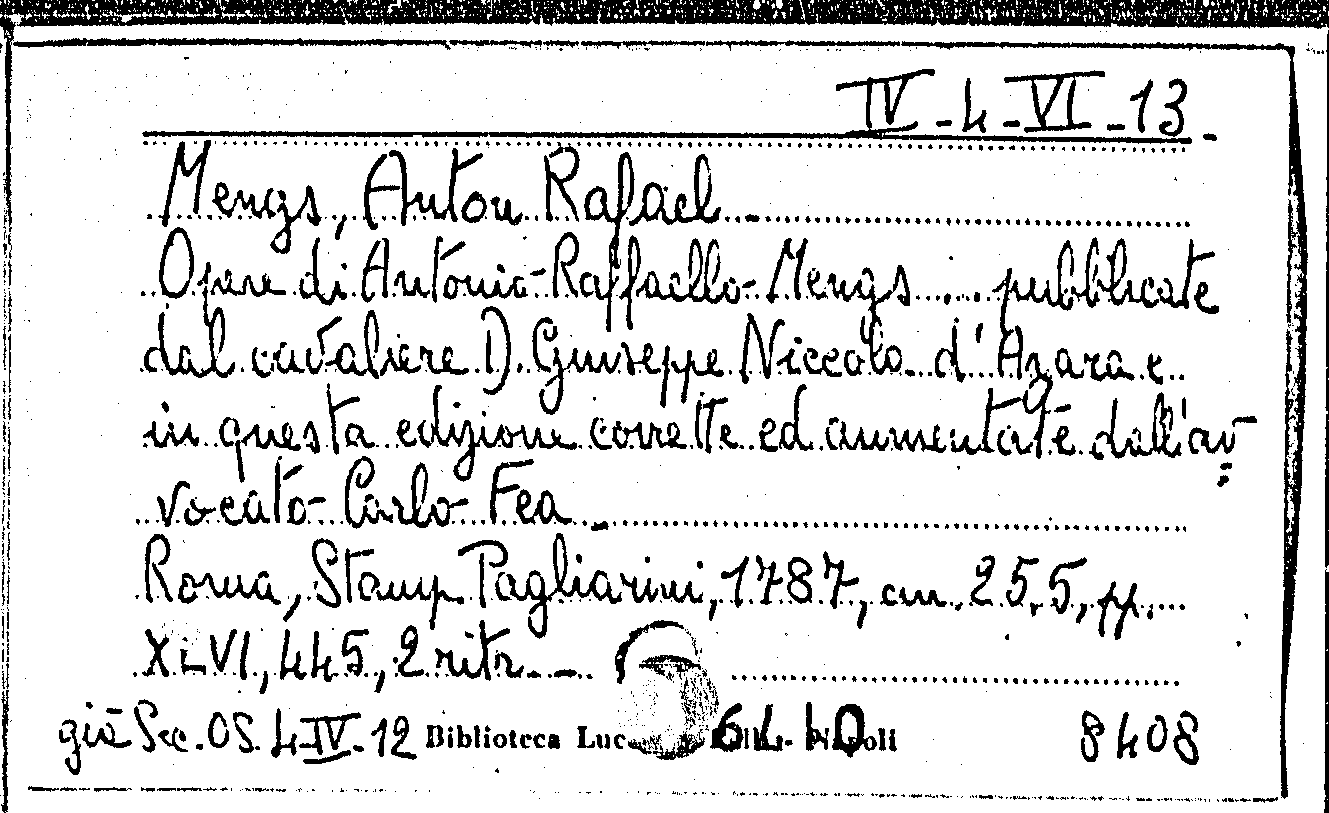 IV-4-VI-13-
Mengs, Anton Rafael -
Opere di Antonio Raffaello Mengs .... pubblicate
dal cavaliere D. Giuseppe Niccola d'Azara e
in questa edizione corrette ed aumentate dall'av=
vocato Carlo Fea -
Roma, Stamp. Pagliarini, 1787, cm. 25,5, pp.
XLVI, 445, 2 ritr. -
già Sec. OS. 4-IV-12 Biblioteca 6440 Napoli 8408